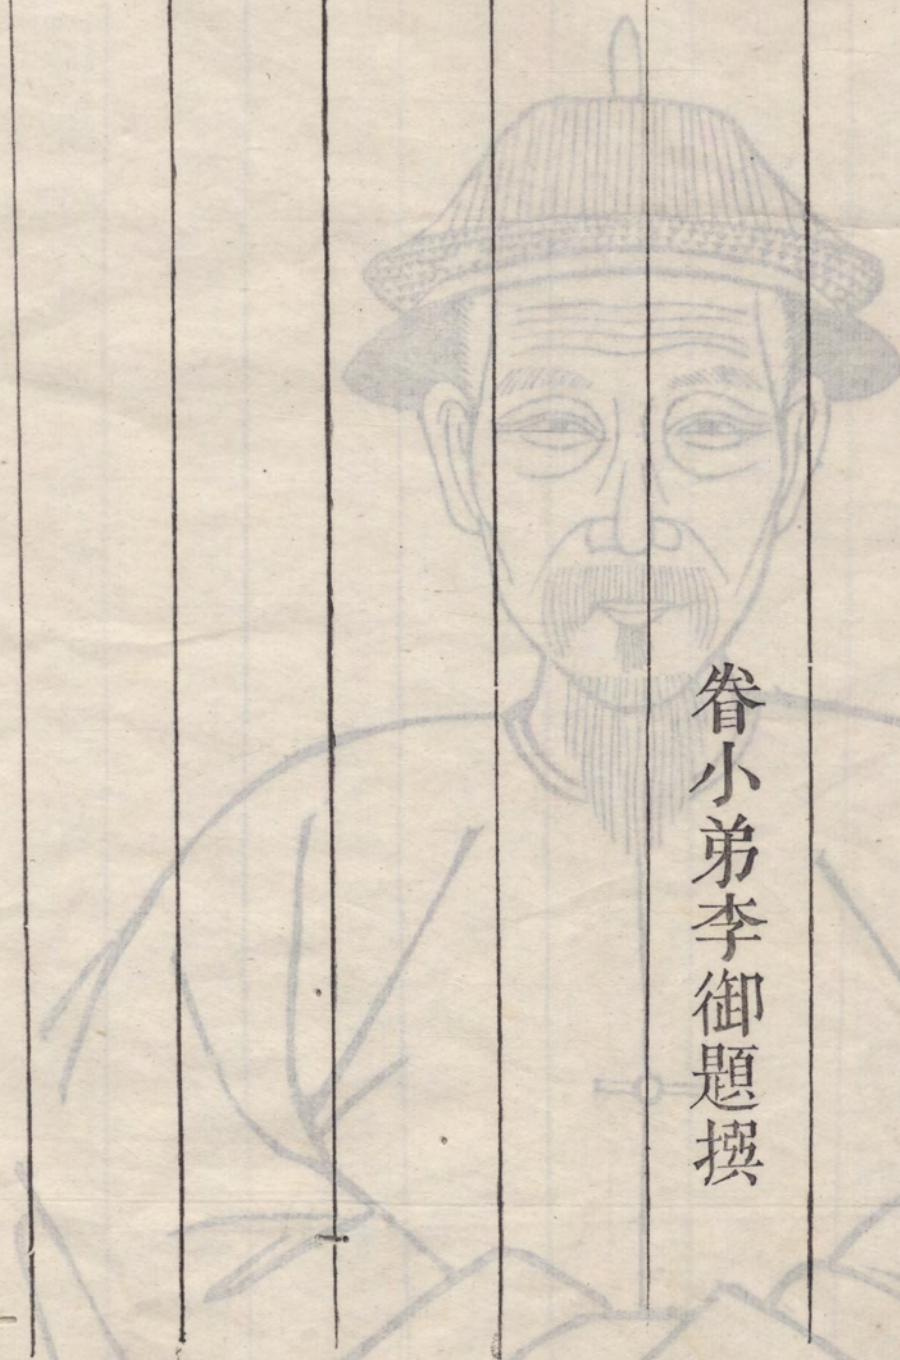 眷小弟李御題撰